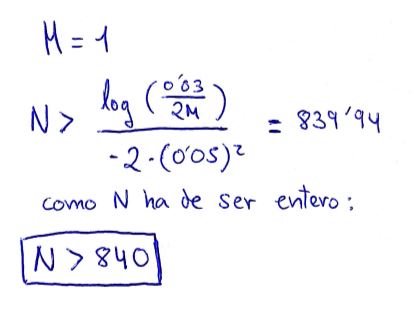 M = 1
N > log (0'03 / 2M) / -2·(0'05)² = 839'94
como N ha de ser entero:
N > 840